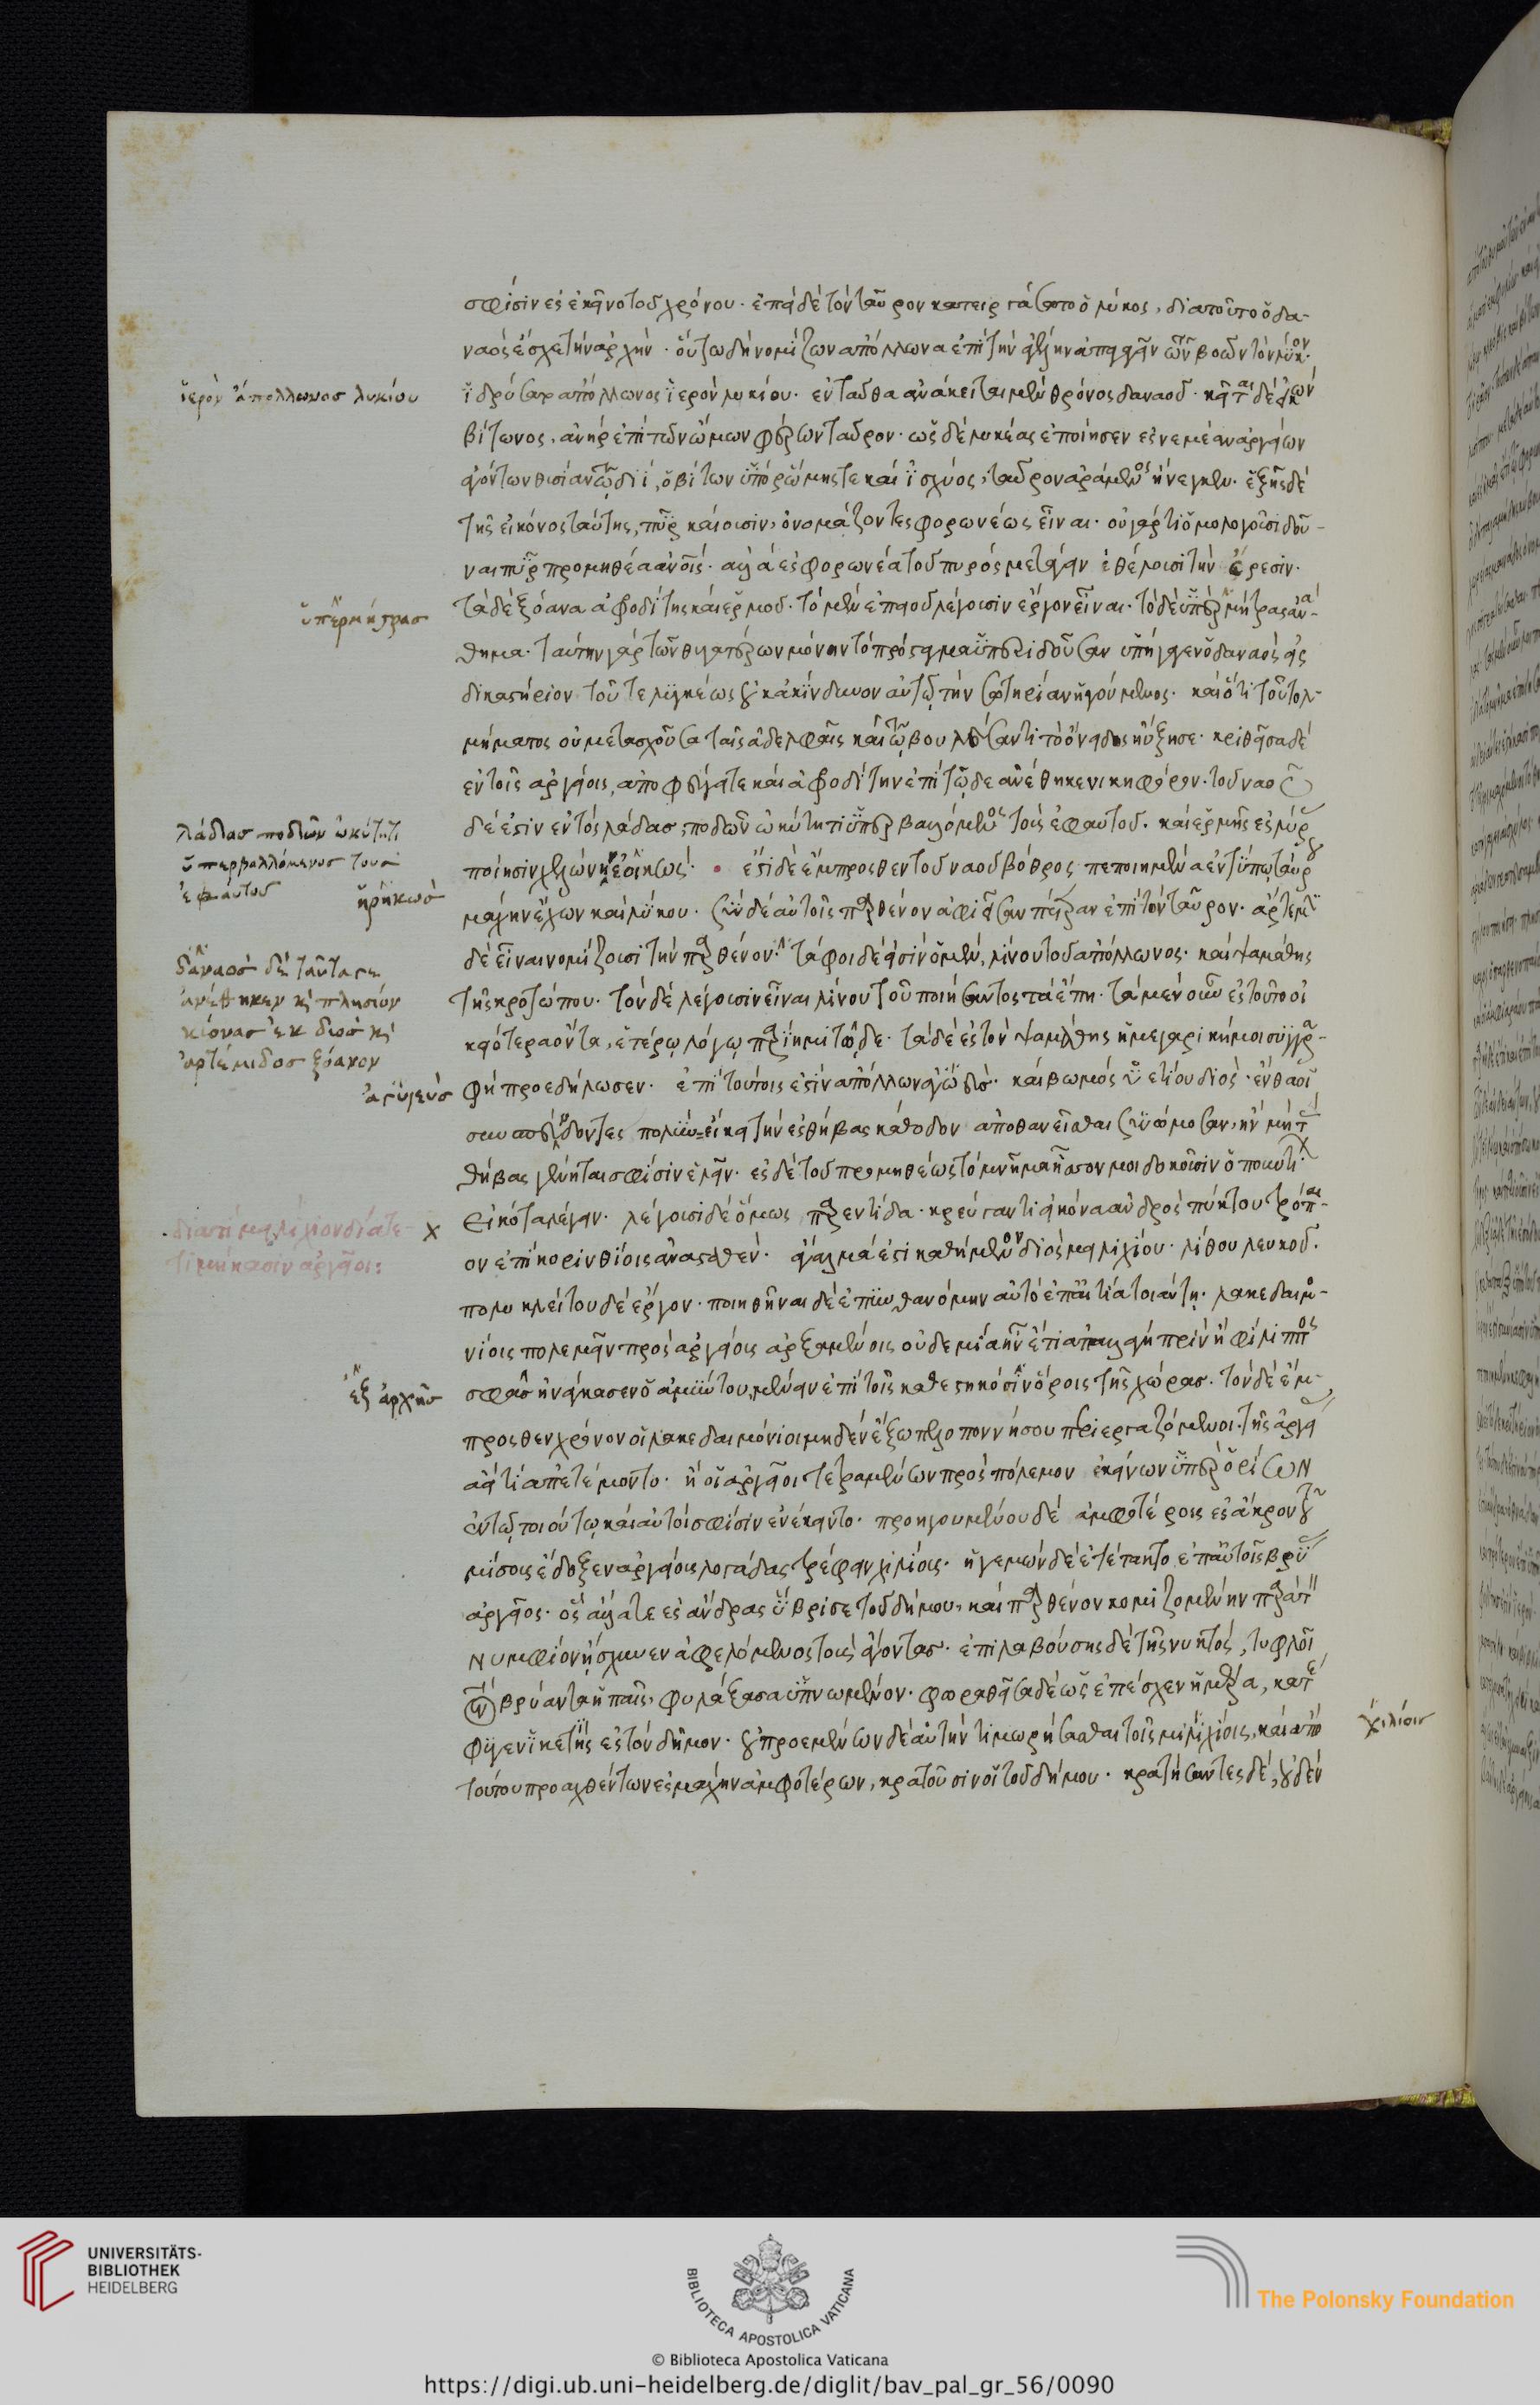 σφίσιν ἐς ἐκεῖνο τοῦ χρόνου. ἐπεὶ δὲ τὸν ταῦρον κατειργάσατο ὁ λύκος, διὰ τοῦτο ὁ δα-
ναὸς ἔσχε τὴν ἀρχήν. οὕτω δὴ νομίζων ἀπόλλωνα ἐπὶ τὴν ἀγέλην ἀπαγαγεῖν τῶν βοῶν τὸν λύκον.
ἱερὸν ἀπόλλωνοσ λυκίου
ἱδρύσατο ἀπόλλωνος ἱερὸν λυκίου. ἐνταῦθα ἀνάκειται μὲν θρόνος δαναοῦ. κεῖται δὲ εἰκὼν
βίτωνος, ἀνὴρ ἐπὶ τῶν ὤμων φέρων ταῦρον. ὡς δὲ λυκέας ἐποίησεν ἐς νεμέαν ἀργείων
ἀγόντων θυσίαν τῷ διί, ὁ βίτων ὑπὸ ῥώμης τε καὶ ἰσχύος, ταῦρον ἀράμενος ἤνεγκεν. ἑξῆς δὲ
τῆς εἰκόνος ταύτης, πῦρ καίουσιν, ὀνομάζοντες φορωνέως εἶναι. οὐ γάρ τι ὁμολογοῦσι δοῦ-
ναι πῦρ προμηθέα ἀνοῖς. ἀλλὰ ἐς φορωνέα τοῦ πυρὸς μετάγειν ἐθέλουσι τὴν εὕρεσιν.
ὑπερμήτρασ
τὰ δὲ ξόανα ἀφροδίτης καὶ ἑρμοῦ. τὸ μὲν ἐπειοῦ λέγουσιν ἔργον εἶναι. τὸ δὲ ὑπερμήτρας ἀνά-
θημα. ταύτην γὰρ τῶν θυγατέρων μόνην τὸ πρόσταγμα ὑπεριδοῦσαν ὑπήγαγεν ὁ δαναὸς ἐς
δικαστήριον τοῦ τε λυγκέως οὐκ ἀκίνδυνον αὑτῷ τὴν σωτηρίαν ἡγούμενος. καὶ ὅτι τοῦ τολ-
μήματος οὐ μετασχοῦσα ταῖς ἀδελφαῖς καὶ τῷ βουλεύσαντι τὸ ὄνειδος ηὔξησε. κριθεῖσα δὲ
ἐν τοῖς ἀργείοις, ἀποφεύγει τε καὶ ἀφροδίτην ἐπὶ τῷδε ἀνέθηκε νικηφόρον. τοῦ ναοῦ
λάδασ ποδῶν ὠκύτητι
ὑπερβαλλόμενοσ τοὺσ
ἐφ αὑτοῦ
δέ ἐστιν ἐντὸς λάδας, ποδῶν ὠκύτητι ὑπερβαλλόμενος τοὺς ἐφ αὑτοῦ. καὶ ἑρμῆς ἐς λύρας
ποίησιν χελώνην ᾑρηκώς. ἔστι δὲ ἔμπροσθεν τοῦ ναοῦ βόθρος πεποιημένα ἐν τύπῳ ταύρου
ᾑρηκωσ
μάχην ἔχων καὶ λύκου. σὺν δὲ αὐτοῖς παρθένον ἀφιεῖσαν πέτραν ἐπὶ τὸν ταῦρον. ἄρτεμιν
δαναὸσ δὲ ταῦτά τε
ἀνέθηκεν κὶ πλησίον
κίονασ ἐκ διοσ κὶ
ἀρτέμιδοσ ξόανον
δὲ εἶναι νομίζουσι τὴν παρθένον. τάφοι δέ εἰσιν ὁ μὲν, λίνου τοῦ ἀπόλλωνος. καὶ ψαμάθης
τῆς κροτώπου. τὸν δὲ λέγουσιν εἶναι λίνου τοῦ ποιήσαντος τὰ ἔπη. τὰ μὲν οὖν ἐς τοῦτο οἰ
κειότερα ὄντα, ἑτέρῳ λόγῳ παρίημι τῷδε. τὰ δὲ ἐς τὸν ψαμάθης ἡ μεγαρική μοι συγγρα-
ἀγυιευσ
φὴ προεδήλωσεν. ἐπὶ τούτοις ἐστὶν ἀπόλλων ἀγυιεύς. καὶ βωμὸς ὑετίου διός. ἔνθα οἱ
σπεύδοντες πολυνείκει τὴν ἐς θήβας κάθοδον ἀποθανεῖσθαι συνώμοσαν, ἢν μὴ τὰς
θήβας γένηται σφίσιν ἑλεῖν. ἐς δὲ τοῦ προμηθέως τὸ μνῆμα ἧσσόν μοι δοκοῦσιν ὀπουντίων
διατί μειλίχιον δία τε-
τιμήκασιν ἀργεῖοι:
εἰκότα λέγειν. λέγουσι δὲ ὅμως παρεντίδα. κρεύγαντι εἰκόνα ἀνδρὸς πύκτου τρόπαι-
ον ἐπὶ κορινθίοις ἀνασταθέν. ἄγαλμά ἐστι καθήμενον διὸς μειλιχίου. λίθου λευκοῦ.
πολυκλείτου δὲ ἔργον. ποιηθῆναι δὲ ἐπυνθανόμην αὐτὸ ἐπ αἰτίᾳ τοιαύτῃ. λακεδαιμο-
νίοις πολεμεῖν πρὸς ἀργείους ἀρξαμένοις οὐδεμία ἦν ἔτι ἀπαλλαγὴ πρὶν ἢ φίλιππος
ἐξ ἀρχῆσ
σφᾶσ ἠνάγκασεν ὁ ἀμύντου, μένειν ἐπὶ τοῖς καθεστηκόσιν ὅροις τῆς χώρασ. τὸν δὲ ἔμ-
προσθεν χρόνον οἱ λακεδαιμόνιοι μηδὲν ἔξω πελοποννήσου περιεργαζόμενοι. τῆς ἀργεί
ας ἀεί τι ἀπετέμοντο. ἢ οἱ ἀργεῖοι τετραμμένων πρὸς πόλεμον ἐκείνων ὑπερορίων
ἐν τῷ τοιούτῳ καὶ αὐτοὶ σφίσιν ἐνέκειντο. προηγουμένου δὲ ἀμφοτέροις ἐς ἄκρον τοῦ
μίσους ἔδοξεν ἀργείοις λογάδας τρέφειν χιλίους. ἡγεμὼν δὲ ἐτέτακτο ἐπ αὐτοῖς βρύας
ἀργεῖος. ὃς ἄλλα τε ἐς ἄνδρας ὕβρισε τοῦ δήμου, καὶ παρθένον κομιζομένην παρὰ τὸν
νυμφίον ᾔσχυνεν ἀφελόμενος τοὺς ἄγοντασ. ἐπιλαβούσης δὲ τῆς νυκτός, τυφλοῖ
τὸν βρύαντα ἡ παῖς, φυλάξασα ὑπνωμένον. φωραθεῖσα δὲ ὡς ἐπέσχεν ἡμέρα, κατέ
φυγεν ἱκέτης ἐς τὸν δῆμον. οὐ προεμένων δὲ αὐτὴν τιμωρήσασθαι τοῖς μιλιχίοις, καὶ ἀπὸ
χιλίοισ
τούτου προαχθέντων ἐς μάχην ἀμφοτέρων, κρατοῦσιν οἱ τοῦ δήμου. κρατήσαντες δέ, οὐδὲν
UNIVERSITÄTS-
BIBLIOTHEK
HEIDELBERG
BIBLIOTECA APOSTOLICA VATICANA
The Polonsky Foundation
© Biblioteca Apostolica Vaticana
https://digi.ub.uni-heidelberg.de/diglit/bav_pal_gr_56/0090